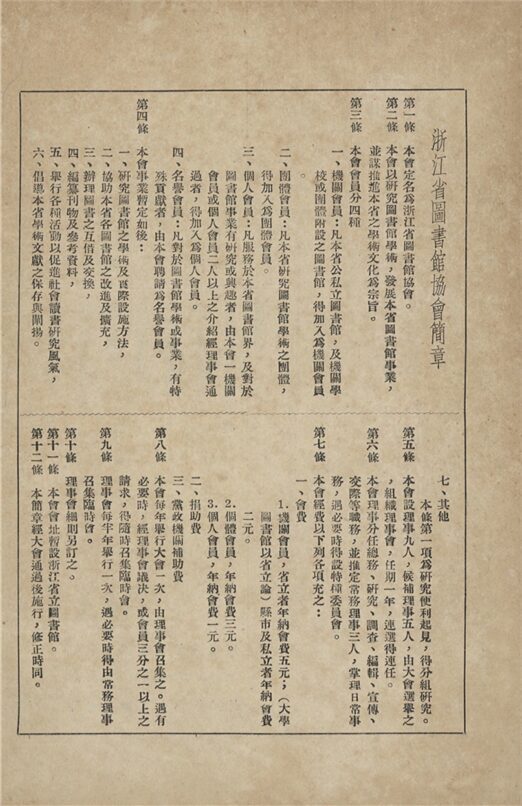 浙江省圖書館協會簡章
第一條 本會定名爲浙江省圖書館協會。
第二條 本會以研究圖書館學術，發展本省圖書館事業，
並謀推進本省之學術文化爲宗旨。
第三條 本會會員分四種
一、機關會員：凡本省公私立圖書館，及機關學
校或團體附設之圖書館，得加入爲機關會員
。
二、團體會員：凡本省研究圖書館學術之團體，
得加入爲團體會員。
三、個人會員：凡服務於本省圖書館界，及對於
圖書館事業有研究或興趣者，由本會一機關
會員或個人會員二人以上之介紹經理事會通
過者，得加入爲個人會員。
四、名譽會員：凡對於圖書館學術或事業，有特
殊貢獻者，由本會聘請爲名譽會員。
第四條 本會事業暫定如後：
一、研究圖書館之學術及實際設施方法，
二、協助本省各圖書館之改進及擴充，
三、辦理圖書之互借及交換，
四、編纂刊物及參考資料，
五、舉行各種活動以促進社會讀書研究風氣，
六、倡導本省學術文獻之保存與闡揚。
七、其他
本條第一項爲研究便利起見，得分組研究。
第五條 本會設理事九人，候補理事五人，由大會選舉之
，組織理事會，任期一年，連選得連任。
第六條 本會理事分任總務、研究、調查、編輯、宣傳、
交際等職務，並推定常務理事三人，掌理日常事
務，遇必要時得設特種委員會。
第七條 本會經費以下列各項充之：
一、會費
1.機關會員，省立者年納會費五元；（大學
圖書館以省立論）縣市及私立者年納會費
二元。
2.團體會員，年納會費三元。
3.個人會員，年納會費一元。
二、捐助費
三、黨政機關補助費
第八條 本會每年舉行大會一次，由理事會召集之。遇有
必要時，經理事會議決，或會員三分之一以上之
請求，得隨時召集臨時會。
第九條 理事會每半年舉行一次，遇必要時得由常務理事
召集臨時會。
第十條 理事會細則另訂之。
第十一條 本會會址暫設浙江省立圖書館。
第十二條 本簡章經大會通過後施行，修正時同。